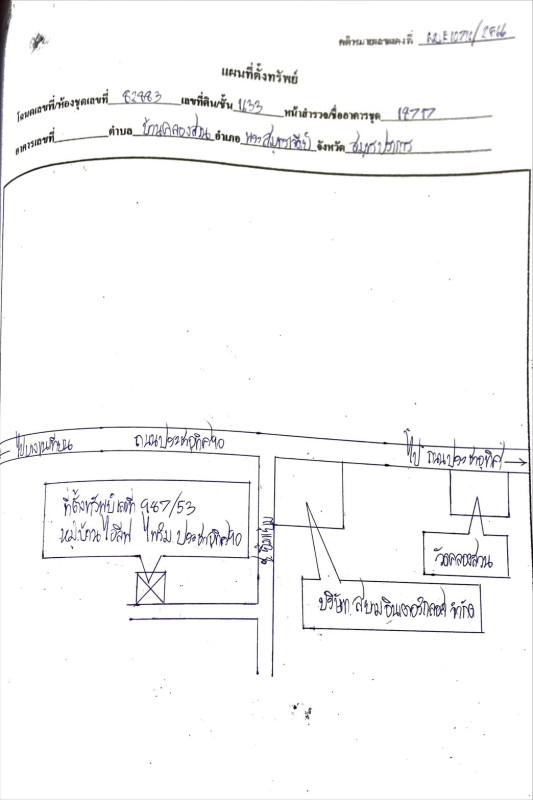 คดีหมายเลขแดงที่ /2566
แผนที่ตั้งทรัพย์
โฉนดเลขที่/ห้องชุดเลขที่ 82883 เลขที่ดิน/ชั้น 1133 หน้าสำรวจ/ชื่ออาคารชุด 19757
อาคารเลขที่ ตำบล บ้านคลองสวน อำเภอ พระสมุทรเจดีย์ จังหวัด สมุทรปราการ
ถนนประชาอุทิศ 90
ไป ถนนประชาอุทิศ
ที่ตั้งทรัพย์เลขที่ 947/53
หมู่บ้าน ไอลีฟ ไพร์ม ประชาอุทิศ 90
วัดคลองสวน
บริษัท สยามอินเตอร์กลอส จำกัด